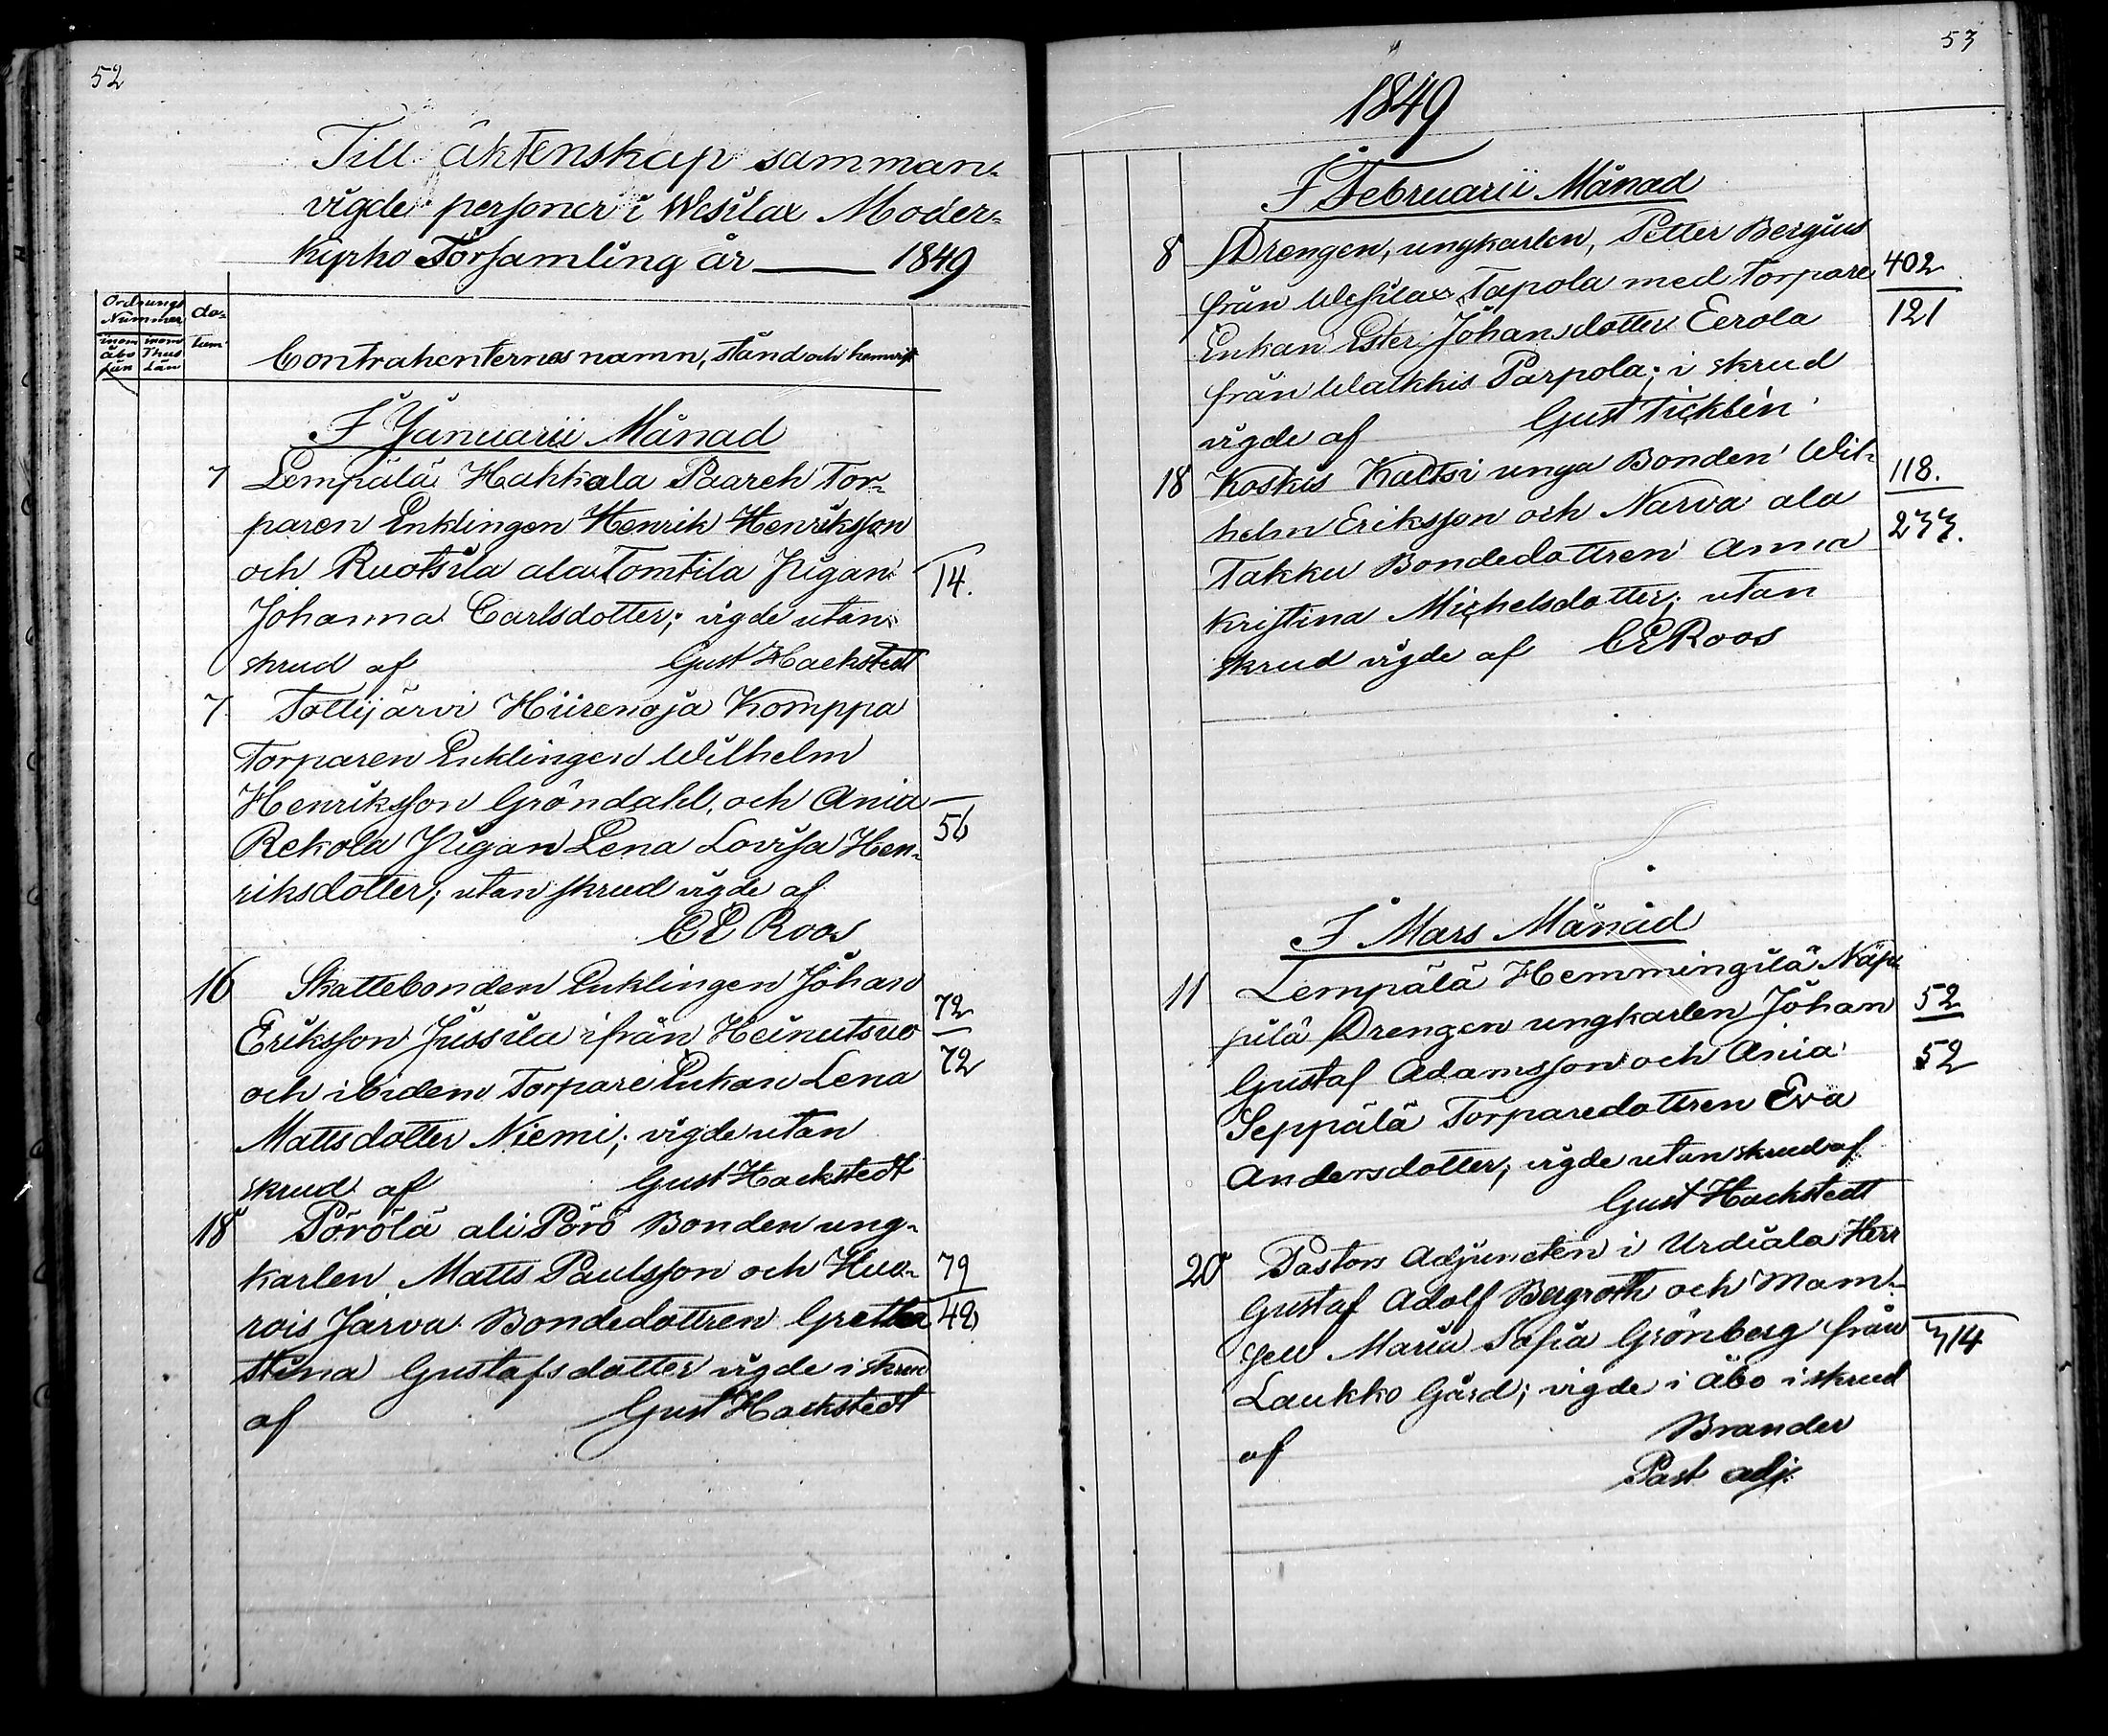 52
Till äktenskap samman-
vigde personer i Wesilax Moder-
kyrko Församling år — 1849
Ordnungs Nummer da-
inom Åbo län inom Thus Län tum
Contrahenternas namn, stånd och hemvist
I Januarii Månad
7 Lempälä Hakkala Paareh Tor-
paren Enklingen Henrik Henriksson
och Ruotsila ala Tomtila Pigan 14.
Johanna Carlsdotter; vigde utan
skrud af Gust Hackstedt
7. Tottijärvi Hiirenoja Komppa
Torparen Enklingen Wilhelm
Henriksson Gröndahl, och Ania
Rekola Pigan Lena Lovisa Hen- 56
riksdotter; utan skrud vigde af
CE Roos
16 Skattebonden Enklingen Johan
Eriksson Jussila ifrån Heinutsuo 72
och ibidem Torpare Enkan Lena 72
Mattsdotter Niemi; vigde utan
skrud af Gust Hackstedt
18 Pörölä ali Pörö Bonden ung-
karlen Matts Paulsson och Huo- 79
rois Jarva Bondedottren Gretha 42
Stina Gustafsdotter vigde i skrud
af Gust Hackstedt
53
1849
I Februarii Månad
8 Drengen, ungkarlen, Petter Bergius
från Wesilax Tapola med Torpare 402
Enkan Ester Johansdotter Eerola 121
från Walkkis Parpola; i skrud
vigde af Gust Ticklén
18 Koskis Kaltsi unga Bonden Wil- 118.
helm Eriksson och Narva ala 233.
Takku Bondedottren Anna
Kristina Michelsdotter; utan
skrud vigde af CE Roos
I Mars Månad
11 Lempälä Hemmingilä Näp-
pilä Drengen ungkarlen Johan 52
Gustaf Adamsson och Ania 52
Seppälä Torparedottren Eva
Andersdotter; vigde utan skrud af
Gust Hackstedt
20 Pastors Adjuncten i Urdiala Herr
Gustaf Adolf Bergroth och Mam-
sell Maria Sofia Grönberg från 314
Laukko Gård; vigde i Åbo i skrud
af Brander
Past adj.